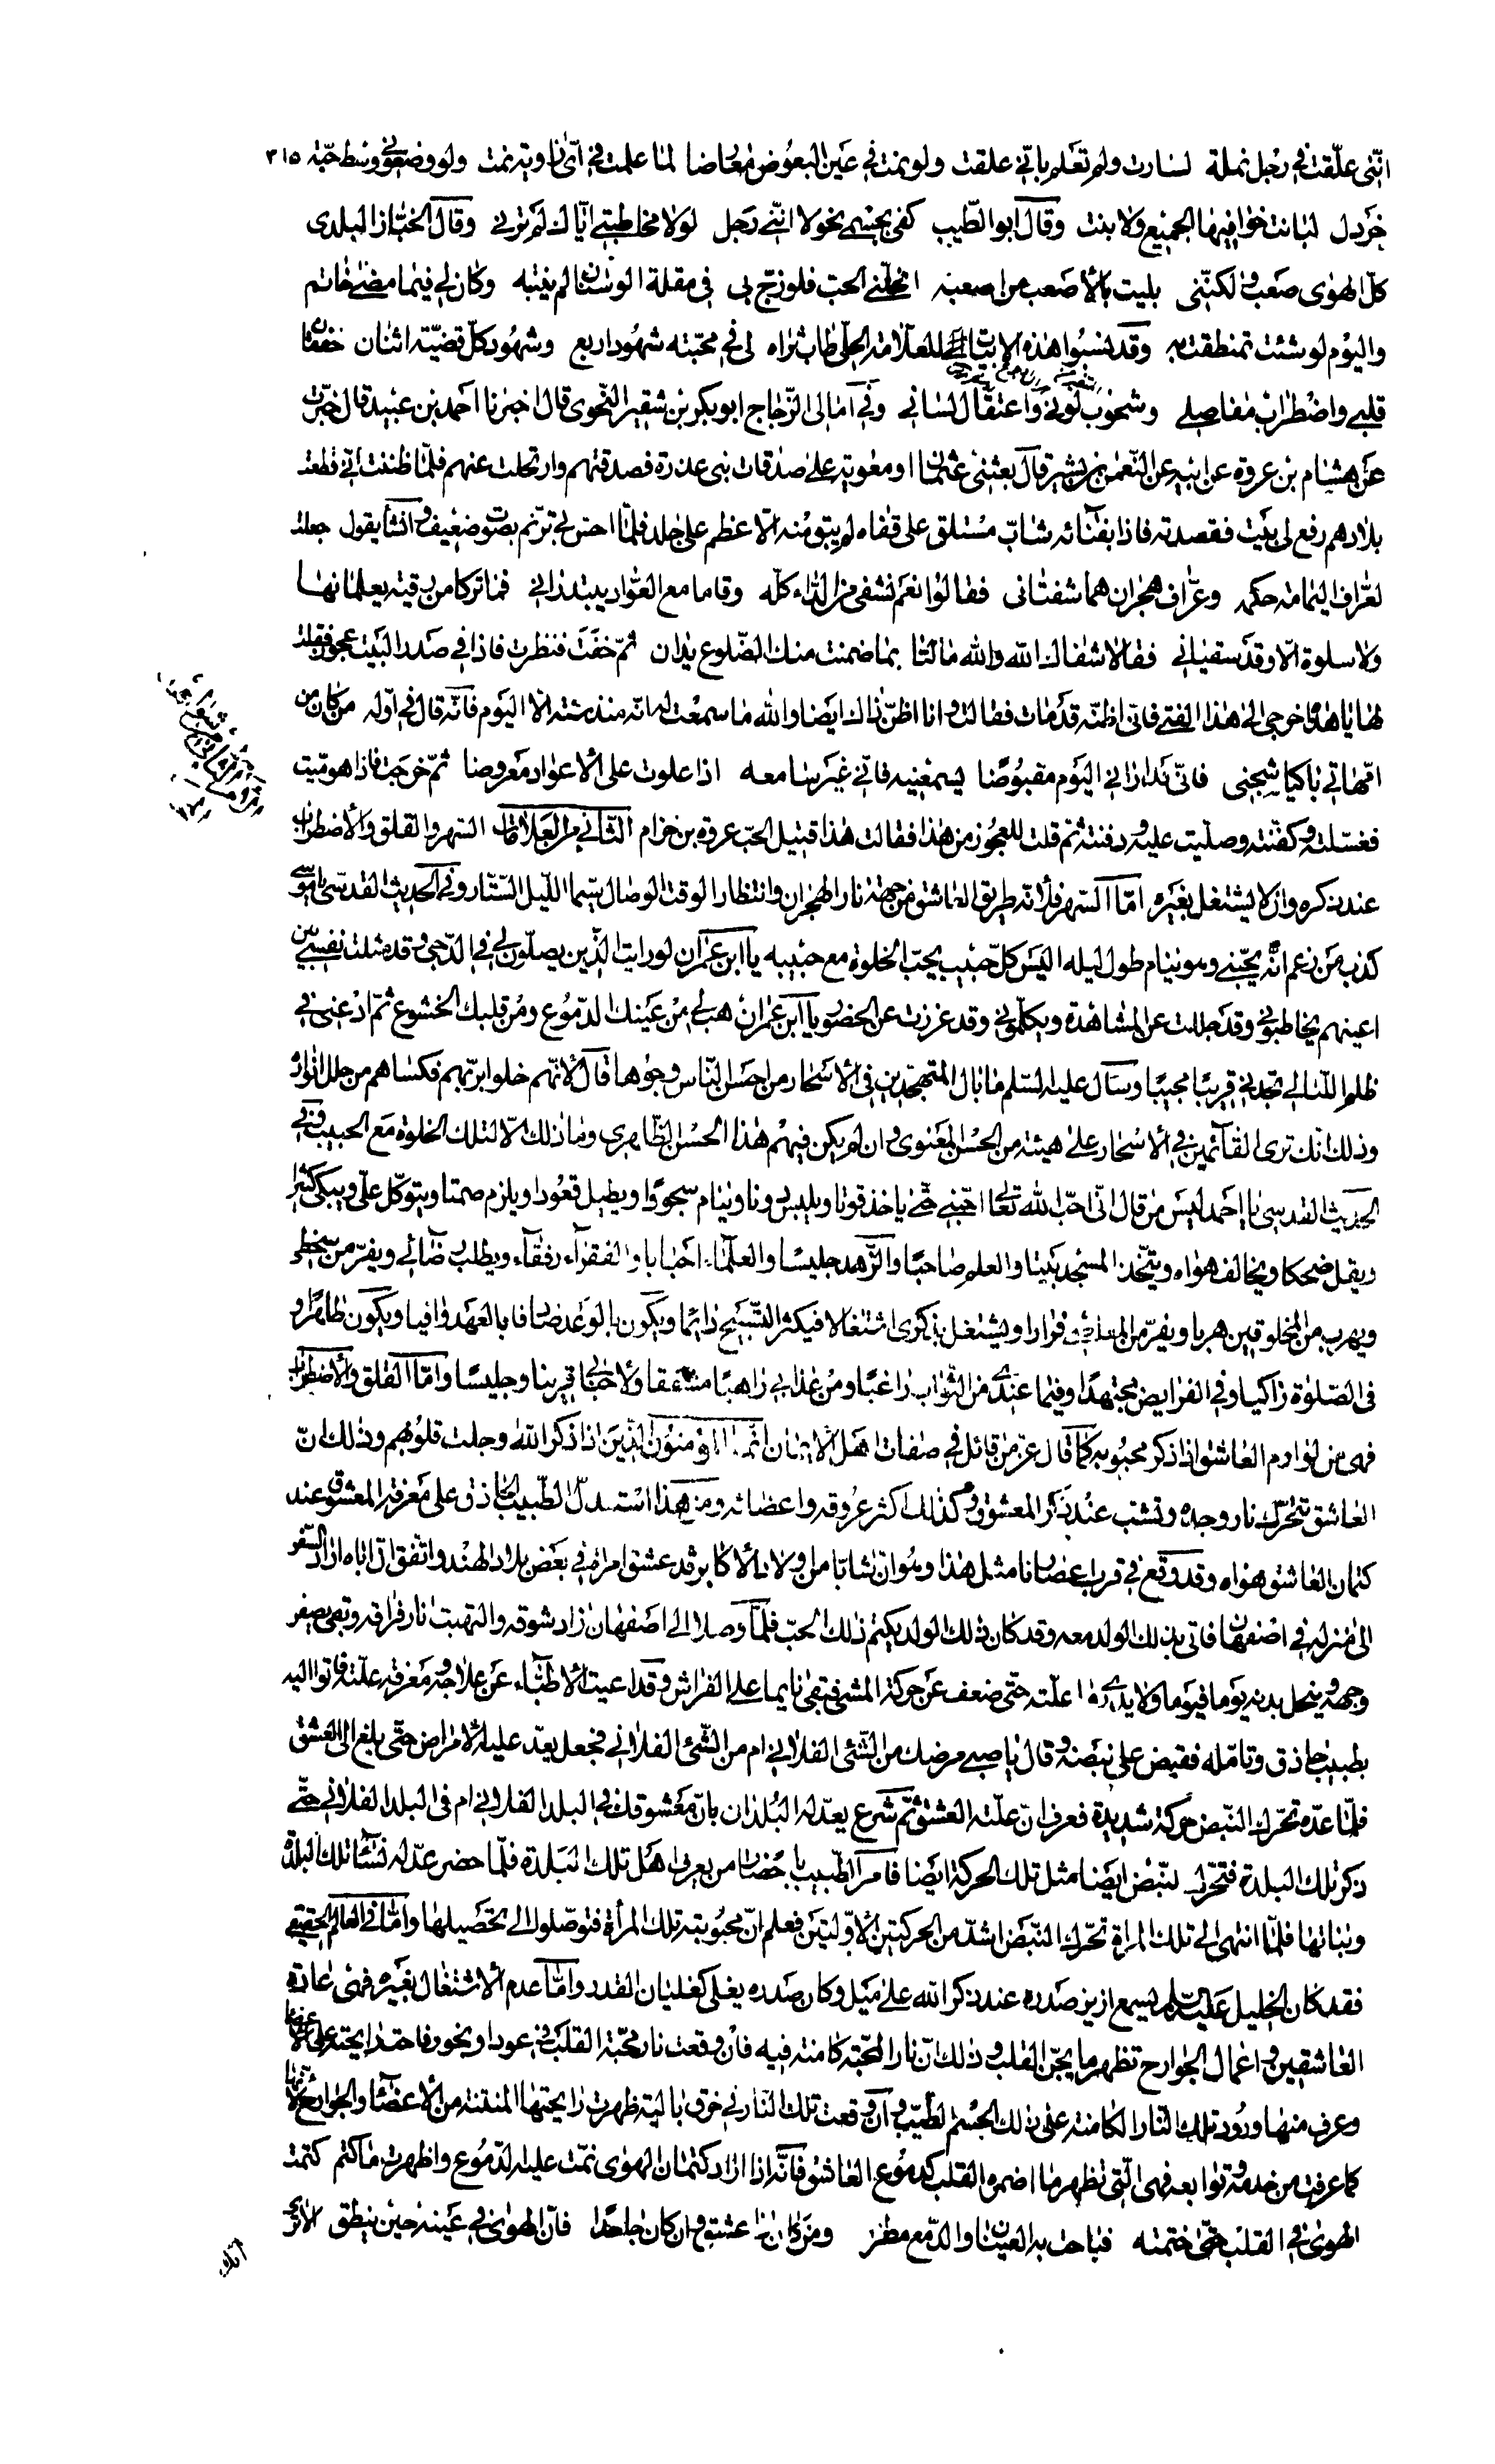 انّنى علّقت فى رجل نملة لسارت ولم تعلم بانّى علقت ولو نمت فى عين البعوض معارضا لما علمت فى اىّ زاوية نمت ولو وضعونى وسط حبّة ٣١٥
خردل لبانت خوافيها الجميع ولا بنت وقال ابو الطّيب كفى بجسمى نحولا انّنى رجل لولا مخاطبتى ايّاك لم ترنى وقال الخبّاز البلدى
كلّ الهوى صعب ولكنّنى بليت بالأصعب من اصعبه انحلنى الحب فلو زجّ بى فى مقلة الوسنان لم ينتبه وكان لى فيما مضى خاتم
واليوم لو شئت تمنطقت به وقد نسبوا هذه الابيات للعلامة الحلّى طاب ثراه لى فى محبّته شهود اربع وشهود كلّ قضيّة اثنان خفقان
قلبى واضطراب مفاصلى وشحوب لونى واعتقال لسانى وفى امالى الزّجاج ابو بكر بن شقير النّحوى قال اخبرنا احمد بن عبيد قال خبرت
عن هشام بن عروة عن ابيه عن النّعمن بن بشير قال بعثنى عثمان او معوية على صدقات بنى عذرة فصدقتهم وارتحلت عنهم فلمّا ظننت انّى قطعت
بلادهم رفع لى بيت فقصدته فاذا بفنائه شابّ مستلق على قفاه لم يبق منه الّا عظم على جلد فلمّا احسّ بى ترنّم بصوت ضعيف وانشأ يقول جعلت
لعرّاف اليمامة حكمه وعرّاف هجران هما شفتانى فقالوا نعم نشفى من الدّاء كلّه وقاما مع العوّاد يبتدرانى فما تركا من رقية يعلمانها
ولا سلوة الّا وقد سقيانى فقالا شفاك الله والله مالنا بما ضمنت منك الضّلوع يدان ثمّ خفت فنظرت فاذا فى صدر البيت عجوز فقلت
لها يا هذه اخرجى الى هذا الفتى فانى اظنّه قد مات فقالت وانا اظنّ ذلك ايضا والله ما سمعت له انّه منذ سنة الّا اليوم فانّه قال فى اوّله من كان من
امّهاتى باكيا شجنى فانّى قد ارانى اليوم مقبوضا يسمعنيه فانّى غير سامعه اذا علوت على الأعواد معروضا ثمّ خرجت فاذا هو ميّت
فغسلته وكفنته وصلّيت عليه ودفنته ثمّ قلت للعجوز من هذا فقالت هذا قتيل الحبّ عروة بن حزام الثّانى من العلامات السّهر والقلق والأضطراب
عند ذكره وان لا يشتغل بغيره امّا السّهر فلأنّه طريق العاشق من جهة نار الهجران وانتظار الوقت الوصال سيّما اللّيل السّتّار وفى الحديث القدسىّ يا موسى
كذب من زعم انّه يحبّنى وهو ينام طول ليله اليس كلّ حبيب يحبّ الخلوة مع حبيبه يا ابن عمران لو رايت الّذين يصلّون لى فى الدّجى وقد مثلت نفسى بين
اعينهم يخاطبونى وقد جللت عن المشاهدة ويكلّمونى وقد عززت عن الحضور يا ابن عمران هب لى من عينك الدّموع ومن قلبك الخشوع ثمّ ادعنى فى
ظلم اللّيالى تجدنى قريبا مجيبا وسئل عليه السّلم ما بال المتهجّدين فى الأسحار من احسن النّاس وجوها قال لأنّهم خلوا بربّهم فكساهم من جلل انواره
وذلك انّك ترى القائمين فى الأسحار على هيئة من الحسن المعنوى وان لم يكن فيهم هذا الحسن الظّاهرى وما ذلك الّا لتلك الخلوة مع الحبيب وفى
الحديث القدسى يا احمد ليس من قال انّى احبّ الله تعالى احبّنى حتّى ياخذ قوتا ويلبس دونا وينام سجودا ويطيل قعودا ويلزم صمتا ويتوكّل علىّ ويبكى كثيرا
ويقلّ ضحكا ويخالف هواه ويتّخذ المسجد بيتا والعلم صاحبا والزّهد جليسا والعلماء احبابا والفقراء رفقاء ويطلب رضائى ويفرّ من سخطى
ويهرب من المخلوقين هربا ويفرّ من المعاصى فرارا ويشتغل بذكرى اشتغالا فيكثر التّسبيح دائما ويكون بالوعد صادقا بالعهد وافيا ويكون طاهرا و
فى الصّلوة زاكيا وفى الفرايض مجتهدا وفيما عندى من الثّواب راغبا ومن عذابى راهبا مشفقا ولأحبّائى قرينا وجليسا وامّا القلق والأضطراب
فهى من لوازم العاشق اذا ذكر محبوبه كما قال عزّ من قائل فى صفات اهل الايمان انّما المؤمنون الّذين اذا ذكر الله وجلت قلوبهم وذلك انّ
العاشق تتحرّك نار وجده وتشبّ عند ذكر المعشوق وكذلك اكثر عروقه واعضائه ومن هذا استدلّ الطّبيب الحاذق على معرفة المعشوق عند
كتمان العاشق هواه وقد وقع فى قرب اعصارنا مثل هذا وهو انّ شابّا من اولاد الأكابر قد عشق امراة فى بعض بلاد الهند واتفق انّ اباه اراد السّفر
الى منزله فى اصفهان فاتى بذلك الولد معه وقد كان ذلك الولد يكتم ذلك الحبّ فلمّا وصلا الى اصفهان زاد شوقه والتهبت نار فراقه وبقى يصفر
وجهه وينحل بدنه يوما فيوما ولا يدرى ما علّته حتى ضعف عن حركة المشى فبقى نايما على الفراش وقد اعيت الأطبّاء عن علاجه ومعرفة علّته فاتوا اليه
بطبيب حاذق وتامّله فقبض على نبضه وقال يا صبى مرضك من الشّئ الفلانى ام من الشّئ الفلانى فجعل يعدّ عليه الأمراض حتّى بلغ الى العشق
فلمّا عدّه تحرّك النّبض حركة شديدة فعرف انّ علّته العشق ثمّ شرع يعدّ له البلدان بانّ معشوقك فى البلد الفلانى ام فى البلد الفلانى حتّى
ذكر تلك البلدة فتحرّك النّبض ايضا مثل تلك الحركة ايضا فامر الطّبيب باحضار من يعرف اهل تلك البلدة فلمّا حضر عدّ له نساء تلك البلدة
وبناتها فلمّا انتهى الى تلك المراة تحرّك النّبض اشدّ من الحركتين الأوّلتين فعلم انّ محبوبته تلك المرأة فتوصّلوا الى تحصيلها وامّا فى العالم الحقيقى
فقد كان الخليل عليه السّلم يسمع ازيز صدره عند ذكر الله على ميل وكان صدره يغلى كغليان القدر وامّا عدم الأشتغال بغيره فهى عادة
العاشقين واعمال الجوارح تظهر ما يجنّ القلب وذلك انّ نار المحبّة كامنة فيه فان وقعت نار محبّة القلب فى عود او بخور فاحت رايحته على الأعضاء
وعرف منها ورود تلك النّار الكامنة على ذلك الجسم الطّيّب وان وقعت تلك النّار فى خرق بالية ظهرت رايحتها المنتنة من الأعضاء والجوارح لأنّها
كما عرفت من خدمه وتوابعه فهى الّتى تظهر ما اضمره القلب كدموع العاشق فانّه اذا اراد كتمان الهوى نمّت عليه الدّموع واظهرت ما كتم كتمت
الهوى فى القلب حتّى ختمته فباحت به العينان والدّمع مطر ومن كان ذا عشق وان كان جاحدا فانّ الهوى فى عينه حين ينطق الأثر